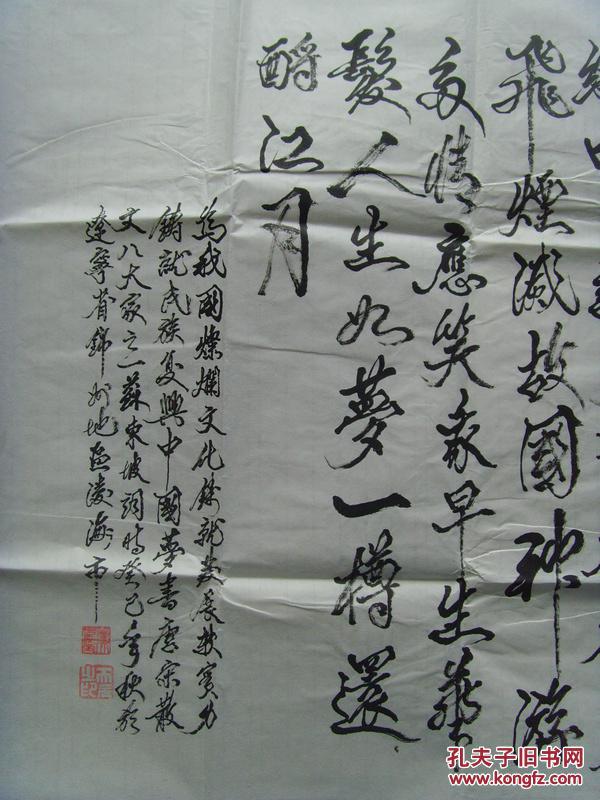 飛煙滅故國神游
多情應笑我早生華
髮人生如夢一樽還
酹江月
為我國燦爛文化鑄就發展軟實力
鑄就民族复興中國夢書唐宋散
文八大家之一蘇東坡詞時癸巳年秋於
遼寧省錦州地區凌海市
孔夫子旧书网
www.kongfz.com